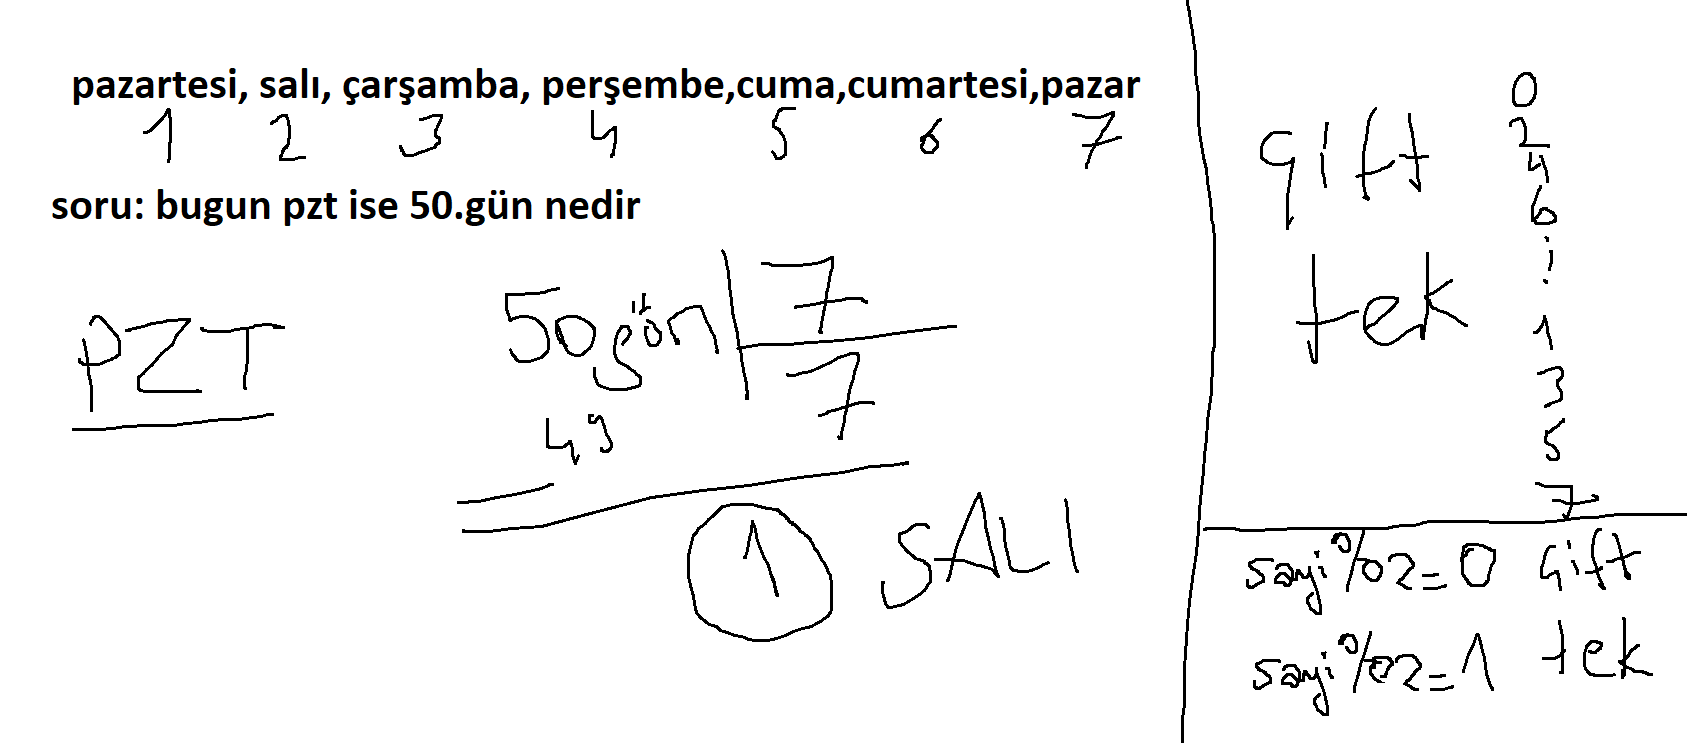 pazartesi, salı, çarşamba, perşembe,cuma,cumartesi,pazar
1 2 3 4 5 6 7
soru: bugun pzt ise 50.gün nedir
PZT
50 gün 7
7
49
1 SALI
çift
0
2
4
6
tek
1
3
5
7
sayi%2=0 çift
sayi%2=1 tek